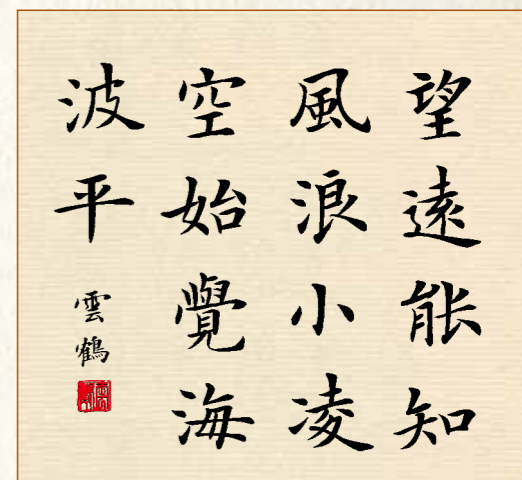 望遠能知
風浪小凌
空始覺海
波平
雲鶴